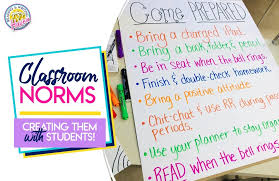 Classroom
NORMS
CREATING THEM
with STUDENTS!
Come PREPARED
• Bring a charged iPad.
• Bring a book, folder, & pencil.
• Be in seat when the bell rings.
• Finish & double-check homework.
• Bring a positive attitude.
• Chit-chat & use RR during
periods.
• Use your planner to stay
• READ when the bell rings